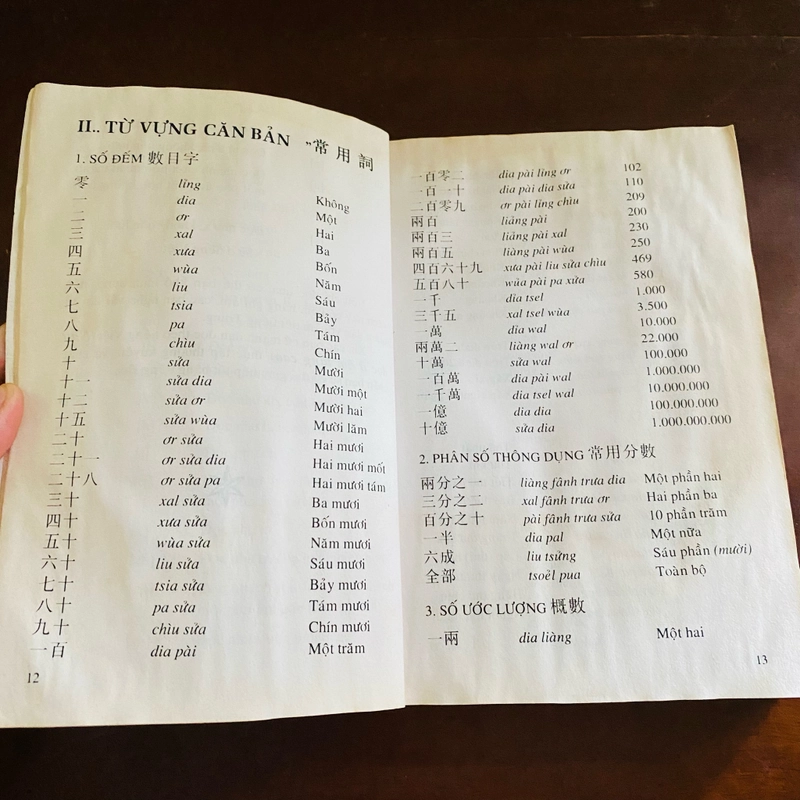 II.. TỪ VỰNG CĂN BẢN "常用詞
1. SỐ ĐẾM 數目字
零 lĩng Không
一 dia Một
二 ơr Hai
三 xal Ba
四 xưa Bốn
五 wùa Năm
六 liu Sáu
七 tsia Bảy
八 pa Tám
九 chìu Chín
十 sửa Mười
十一 sửa dia Mười một
十二 sửa ơr Mười hai
十五 sửa wùa Mười lăm
二十 ơr sửa Hai mươi
二十一 ơr sửa dia Hai mươi mốt
二十八 ơr sửa pa Hai mươi tám
三十 xal sửa Ba mươi
四十 xưa sửa Bốn mươi
五十 wùa sửa Năm mươi
六十 liu sửa Sáu mươi
七十 tsia sửa Bảy mươi
八十 pa sửa Tám mươi
九十 chìu sửa Chín mươi
一百 dia pài Một trăm
12
一百零二 dia pài lĩng ơr 102
一百一十 dia pài dia sửa 110
二百零九 ơr pài lĩng chìu 209
兩百 liàng pài 200
兩百三 liàng pài xal 230
兩百五 liàng pài wùa 250
四百六十九 xưa pài liu sửa chìu 469
五百八十 wùa pài pa xửa 580
一千 dia tsel 1.000
三千五 xal tsel wùa 3.500
一萬 dia wal 10.000
兩萬二 liàng wal ơr 22.000
十萬 sửa wal 100.000
一百萬 dia pài wal 1.000.000
一千萬 dia tsel wal 10.000.000
一億 dia dia 100.000.000
十億 sửa dia 1.000.000.000
2. PHÂN SỐ THÔNG DỤNG 常用分數
兩分之一 liàng fânh trưa dia Một phần hai
三分之二 xal fânh trưa ơr Hai phần ba
百分之十 pài fânh trưa sửa 10 phần trăm
一半 dia pal Một nữa
六成 liu tsửng Sáu phần (mười)
全部 tsoẻl pua Toàn bộ
3. SỐ ƯỚC LƯỢNG 概數
一兩 dia liàng Một hai
13